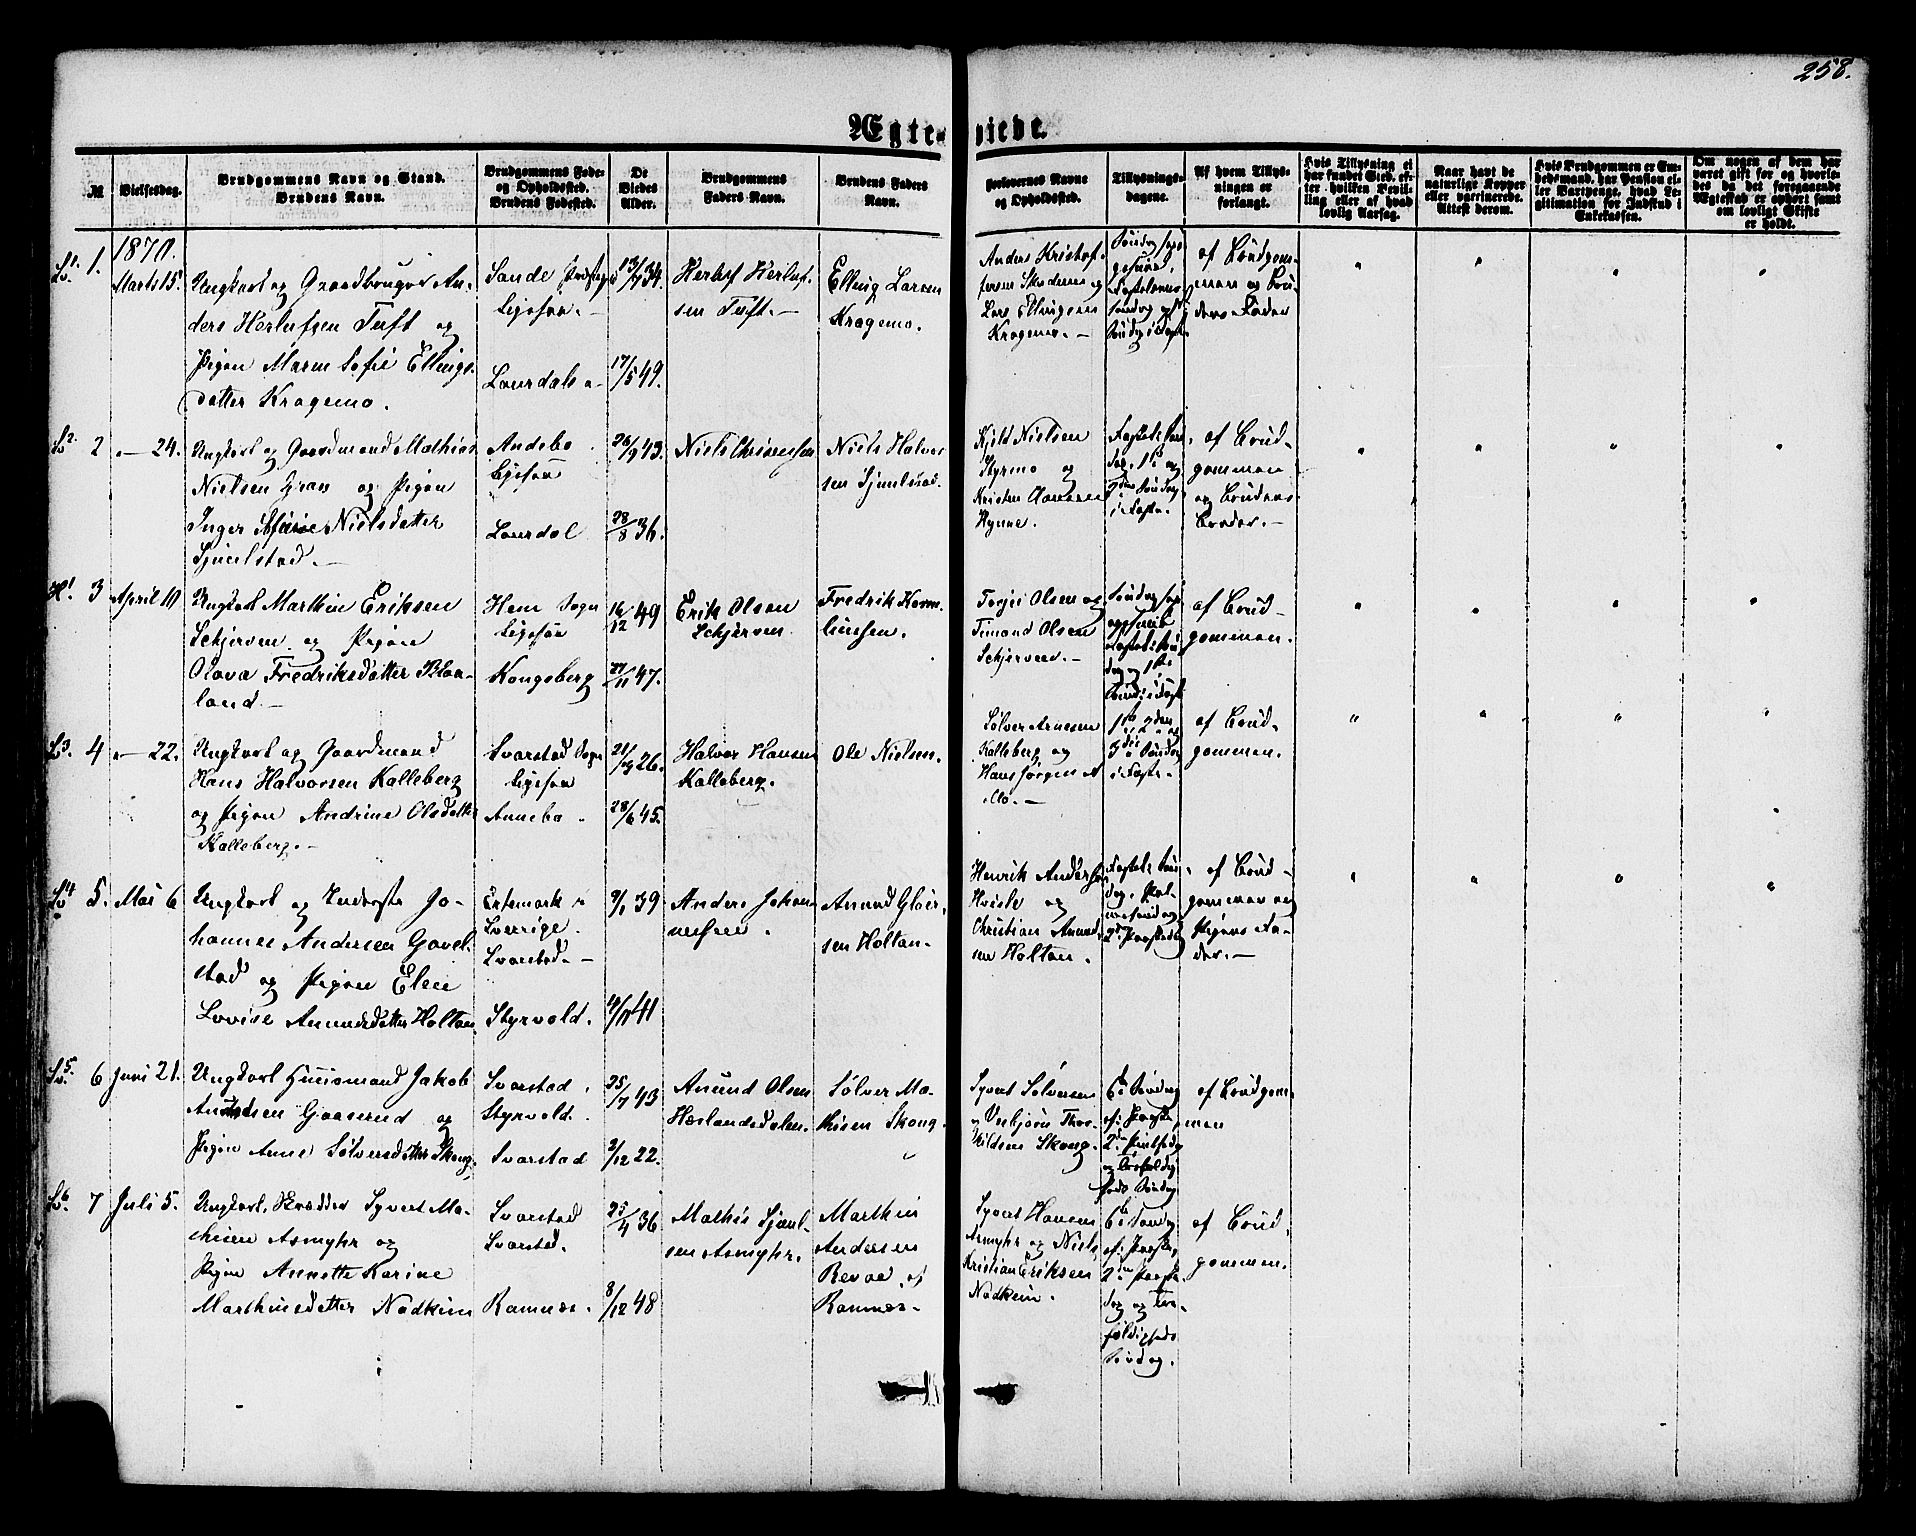 258.
Ægte- viede.
№
Vielsesdag.
Brudgommens Navn og Stand.
Brudens Navn.
Brudgommens Føde-
og Opholdssted.
Brudens Fødested.
De
Viedes
Alder.
Brudgommens
Faders Navn.
Brudens Faders
Navn.
Forlovernes Navne
og Opholdssted.
Tillysnings-
dagene.
Af hvem Tillys-
ningen er
forlangt.
Hvis Tillysning ei
har fundet Sted, ef-
ter hvilken Bevil-
ling eller af hvad
lovlig Aarsag.
Naar havt de
naturlige Kopper
eller vaccinerede.
Attest derom.
Hvis Brudgommen er Em-
bedsmand, har Pension el-
ler Vartpenge, hvad Le-
gitimation for Indskud i
Enkekassen.
Om nogen af dem har
været gift før og hvorle-
des da det foregaaende
Ægteskab er ophørt samt
om lovligt Skifte
er holdt.
1870.
Sv. 1. 1. Marts 15.
Ungkarl og Gaardbruger An-
ders Herlufsen Tuft og
Pigen Maren Sofie Ellings-
datter Kragemo.
Sande
Ligesaa.
Laurdal
13/7 34.
17/5 49.
Herluf Herluf-
sen Tuft.
Elling Larsen
Kragemo.
Anders Kristof-
fersen og
Lars Ellingsen
Kragemo.
af Brudgom-
men og Bru-
dens Fader
Sv. 2. 2 — 24.
Ungkarl og Gaardmand Mathias
Nielsen Gran og Pigen
Inger Nielsdatter
Sjuelstad.
Andebo
Ligesaa
Laurdal
26/9 43.
28/8 36.
Niels Chrisensen
Niels Halvor
sen Sjuelstad.
Kjeld Nielsen
Styrmo og
Kristen Hansen
af Brud-
gommen
og Brudens
Broder.
H. 1 3 April 10
Ungkarl Marthin Eriksen
Schjerven og Pigen
Olava Fredriksdatter Blaa-
land.
Hem Sogn
Ligesaa
Kongsberg
16/12 49
27/11 47.
Erik Olsen
Schjerven
Fredrik Herm
linssen.
Torjei Olsen og
Timand Olsen
Schjerven.
af Brud-
gommen.
Sv. 3. 4 — 22.
Ungkarl og Gaardmand
Hans Halvorsen Kalleberg
og Pigen Andrine Olsdatter
Kalleberg.
Svarstad Sogn
Ligesaa
Annebo
26.
28/6 45.
Halvor Hansen
Kalleberg.
Ole Nielsen.
Sølver Arnesen
Kalleberg og
Hans Jørgen
1ste, 2den og
3die Søndag
i Faste.
af Brud-
gommen.
Sv. 4 5. Mai 6
Ungkarl og Inderste Jo-
hannes Andersen Gavel-
stad og Pigen Elen
Lovise Anundsdatter Holtan.
Ertemark i
Sverrige.
Svarstad.
Styrvold.
9/1 39
4/11 41
Anders Johan-
nesen.
Anund
sen Holtan.
Henrik Andersen
og
Christian Anund-
sen Holtan.
af Brud-
gommen og
Pigens Fa-
der.
Sv. 5. 6 Juni 21.
Ungkarl Huusmand Jakob
Anundsen Gaaserud og
Pigen Anne Sølversdatter Skoug.
Svarstad
Styrvold.
Svarstad
25/7 43
2/12 22.
Anund Olsen
Hærlandsdalen.
Sølver Ma-
thisen Skoug.
Syvert Sølversen
og Vebjørn Thor-
kildsen Skoug.
6te Søndag
af Brudgom-
men
Sv. 6. 7 Juli 5.
Ungkarl, Skrædder Syvert Ma-
thisen Asmyhr og
Pigen Annette Karine
Marthinsdatter Nadkim
Svarstad
Svarstad.
Ramnæs.
25/4 36
8/12 48
Mathis Sjuel-
sen Asmyhr.
Marthin
Andersen
Revaa, af
Ramnæs.
Syvert Hansen
Asmyhr og Niels
Kristian Eriksen
Nadkim.
6te Søndag
og Tre-
foldigheds
Søndag.
af Brud-
gommen.